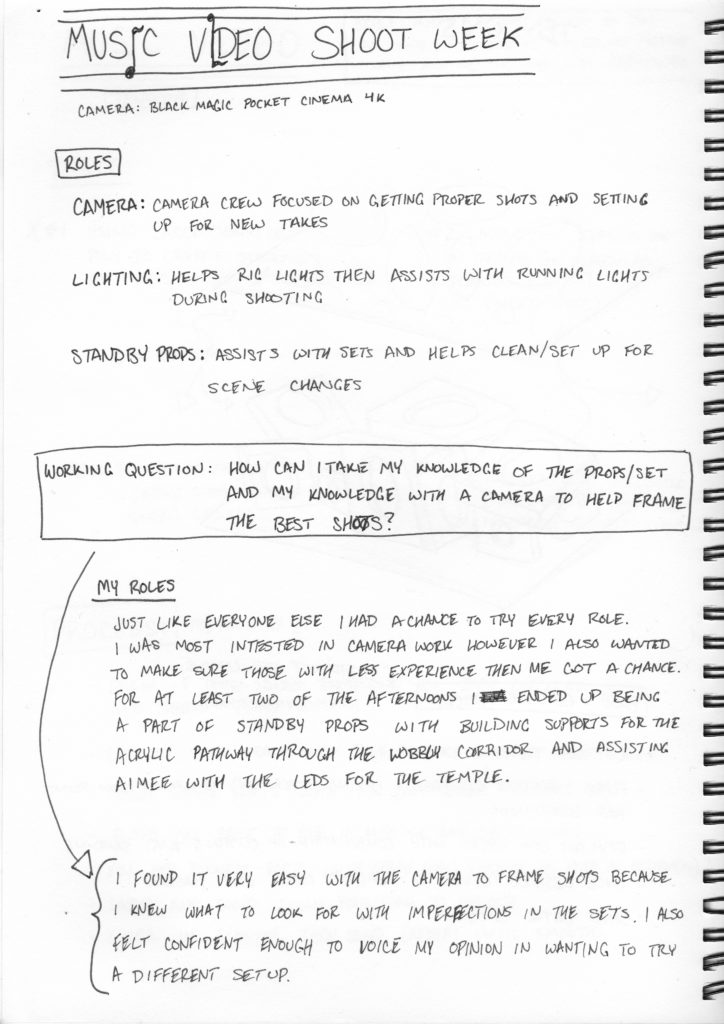 MUSIC VIDEO SHOOT WEEK
CAMERA: BLACK MAGIC POCKET CINEMA 4K
ROLES
CAMERA: CAMERA CREW FOCUSED ON GETTING PROPER SHOTS AND SETTING
UP FOR NEW TAKES
LIGHTING: HELPS RIG LIGHTS THEN ASSISTS WITH RUNNING LIGHTS
DURING SHOOTING
STANDBY PROPS: ASSISTS WITH SETS AND HELPS CLEAN/SET UP FOR
SCENE CHANGES
WORKING QUESTION: HOW CAN I TAKE MY KNOWLEDGE OF THE PROPS/SET
AND MY KNOWLEDGE WITH A CAMERA TO HELP FRAME
THE BEST SHOTS?
MY ROLES
JUST LIKE EVERYONE ELSE I HAD A CHANCE TO TRY EVERY ROLE.
I WAS MOST INTESTED IN CAMERA WORK HOWEVER I ALSO WANTED
TO MAKE SURE THOSE WITH LESS EXPERIENCE THEN ME GOT A CHANCE.
FOR AT LEAST TWO OF THE AFTERNOONS I ENDED UP BEING
A PART OF STANDBY PROPS WITH BUILDING SUPPORTS FOR THE
ACRYLIC PATHWAY THROUGH THE WOBBLY CORRIDOR AND ASSISTING
AIMEE WITH THE LEDS FOR THE TEMPLE.
I FOUND IT VERY EASY WITH THE CAMERA TO FRAME SHOTS BECAUSE
I KNEW WHAT TO LOOK FOR WITH IMPERFECTIONS IN THE SETS. I ALSO
FELT CONFIDENT ENOUGH TO VOICE MY OPINION IN WANTING TO TRY
A DIFFERENT SETUP.